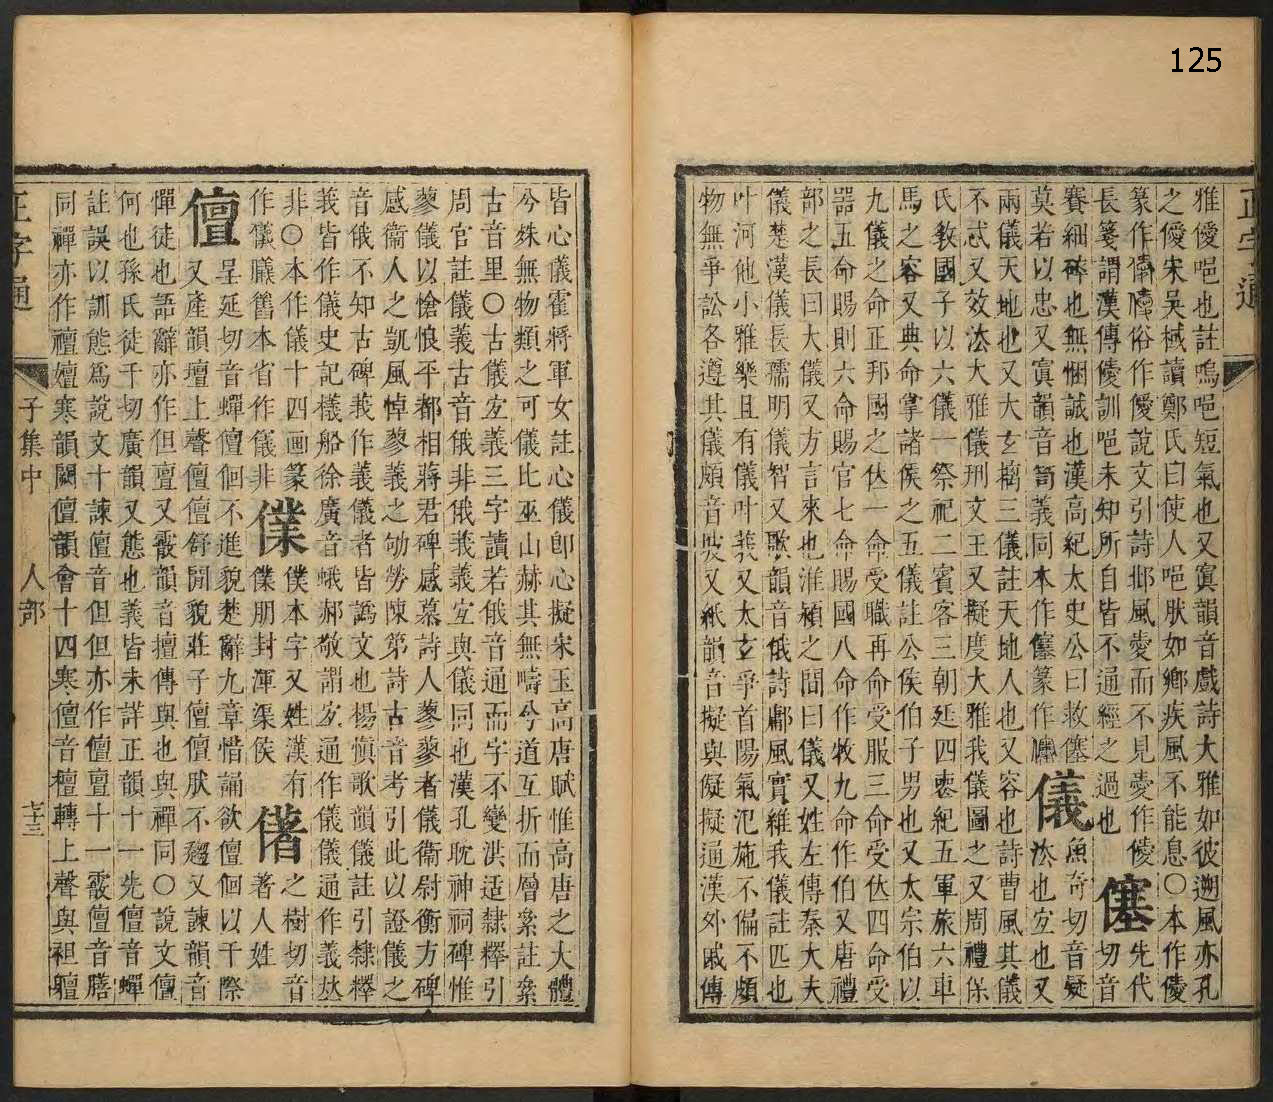 125
正字通
雅僾唈也註嗚唈短氣也又寘韻音戲詩大雅如彼遡風亦孔
之僾宋吳棫讀鄭氏曰使人唈肰如鄉疾風不能息○本作㥶
篆作俗作僾說文引詩邶風愛而不見薆作㥶
長箋謂漢傳㥶訓唈未知所自皆不通經之過也
僿
先代切音
賽細碎也無悃誠也漢高紀太史公曰救僿
莫若以忠又寘韻音笥義同本作僿篆作
儀
魚奇切音疑
法也宐也又
兩儀天地也又大玄摛三儀註天地人也又容也詩曹風其儀
不忒又效法大雅儀刑文王又擬度大雅我儀圖之又周禮保
氏敎國子以六儀一祭祀二賓客三朝廷四喪紀五軍旅六車
馬之容又典命掌諸侯之五儀註公侯伯子男也又大宗伯以
九儀之命正邦國之位一命受職再命受服三命受位四命受
器五命賜則六命賜官七命賜國八命作牧九命作伯又唐禮
部之長曰大儀又方言來也淮潁之間曰儀又姓左傳秦大夫
儀楚漢儀長孺明儀智又歌韻音俄詩鄘風實維我儀註匹也
叶河他小雅樂且有儀叶莪又太玄爭首陽氣氾施不偏不頗
物無爭訟各遵其儀頗音坡又紙韻音擬與儗擬通漢外戚傳
皆心儀霍將軍女註心儀卽心擬宋玉高唐賦惟高唐之大體
兮殊無物類之可儀比巫山赫其無疇兮道互折而層絫註絫
古音里○古儀宐義三字讀若俄音通而字不變洪适隸釋引
周官註儀義古音俄非俄莪義宐與儀同也漢孔耽神祠碑惟
蓼儀以愴悢平都相蔣君碑感慕詩人蓼蓼者儀衞尉衡方碑
感衞人之凱風悼蓼義之劬勞陳第詩古音考引此以證儀之
音俄不知古碑莪作義儀者皆譌文也楊愼歌韻儀註引隸釋
莪皆作儀史記檥船徐廣音蛾郝敬謂宐通作儀儀通作義夶
非○本作儀十四画篆
作儀臐舊本省作儀非
僕
僕本字又姓漢有
僕朋封渾渠侯
㒂
之樹切音
著人姓
儃
呈延切音蟬儃佪不進貌楚辭九章惜誦欲儃佪以干際
又產韻壇上聲儃儃舒閒貌莊子儃儃肰不趨又諫韻音
憚徒也語辭亦作但亶又霰韻音擅傳與也與禪同○說文儃
何也孫氏徒干切廣韻又態也義皆未詳正韻十一先儃音蟬
註誤以訓態爲說文十諫儃音但但亦作儃亶十一霰儃音膳
同禪亦作襢嬗寒韻闕儃韻會十四寒儃音檀轉上聲與袒襢
正字通
子集中
人部
七十三